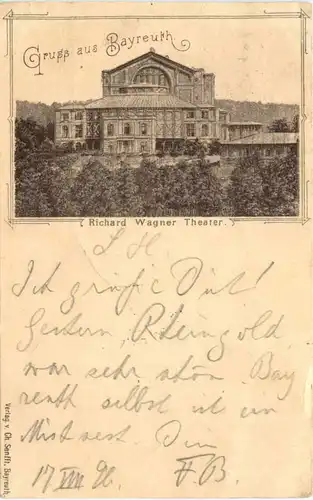 Gruss aus Bayreuth
Richard Wagner Theater.
L. H.
Ich grüße Dich!
Gestern Rheingold,
war sehr schön. Bay
reuth selbst ist ein
Mistnest. Dein
17 VIII 96. F. B.
Verlag v. Ch. Senfft, Bayreuth.